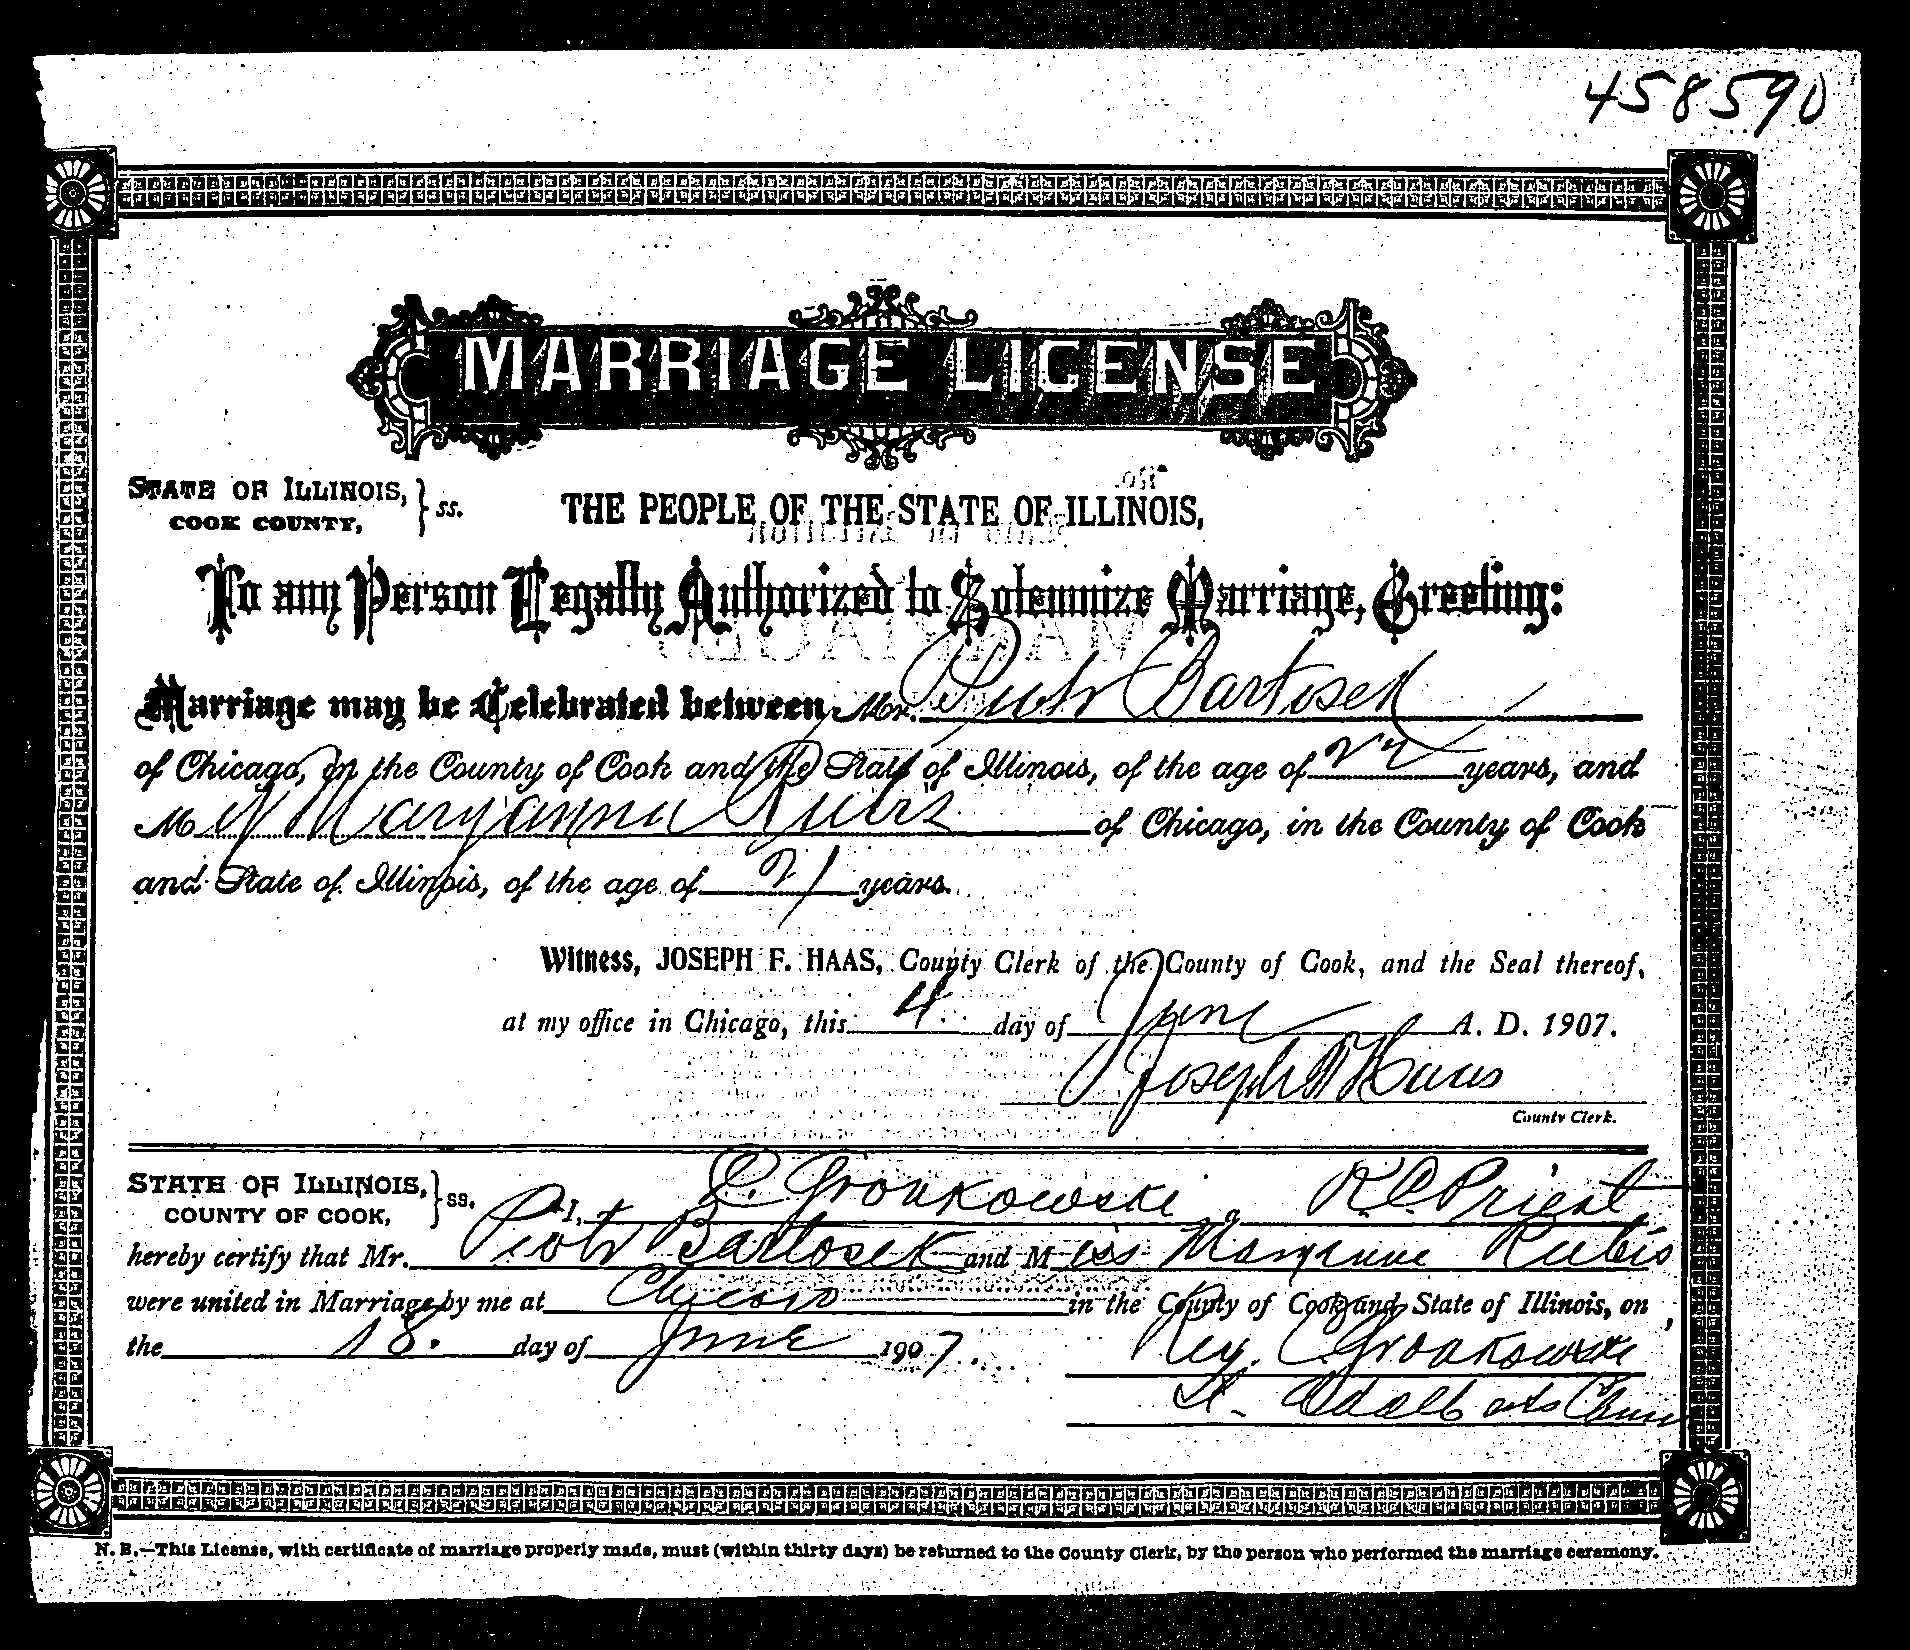 458590
MARRIAGE LICENSE
STATE OF ILLINOIS, } ss.
COOK COUNTY,
THE PEOPLE OF THE STATE OF ILLINOIS,
To any Person Legally Authorized to Solemnize Marriage, Greeting:
Marriage may be Celebrated between Mr. Piotr Bartosek
of Chicago, in the County of Cook and the State of Illinois, of the age of 22 years, and
M Maryanna Rubis of Chicago, in the County of Cook
and State of Illinois, of the age of 21 years.
Witness, JOSEPH F. HAAS, County Clerk of the County of Cook, and the Seal thereof,
at my office in Chicago, this 4 day of June A. D. 1907.
Joseph F Haas
County Clerk.
STATE OF ILLINOIS, } ss. I, C. Gronkowski a R.C. Priest
COUNTY OF COOK,
hereby certify that Mr. Piotr Bartosek and Miss Maryanne Rubis
were united in Marriage by me at Chicago in the County of Cook and State of Illinois, on
the 18. day of June 1907.
Rev. C. Gronkowski
St. Adalberts Church
N. B.—This License, with certificate of marriage properly made, must (within thirty days) be returned to the County Clerk, by the person who performed the marriage ceremony.